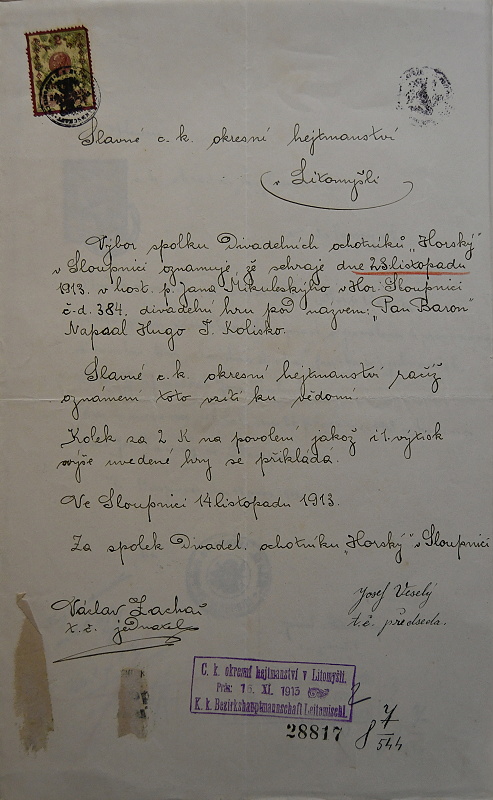 2
Slavné c. k. okresní hejtmanství
v Litomyšli
Výbor spolku Divadelních ochotníků „Horský"
v Sloupnici oznamuje, že sehraje dne 23. listopadu
1913. v host. p. Jana Mikuleského v Hor. Sloupnici
č. d. 384. divadelní hru pod názvem: „Pan Baron"
Napsal Hugo F. Kolisko.
Slavné c. k. okresní hejtmanství račiž
oznámení toto vzíti ku vědomí.
Kolek za 2 K na povolení jakož i 1. výtisk
výše uvedené hry se přikládá.
Ve Sloupnici 14 listopadu 1913.
Za spolek Divadel. ochotníku „Horský" v Sloupnici
Václav Zachař
t. č. jednatel
Josef Veselý
t. č. předseda.
C. k. okresní hejtmanství v Litomyšli.
XI. 1913
K. k. Bezirkshauptmannschaft Leitomischl.
28817
8 7/544